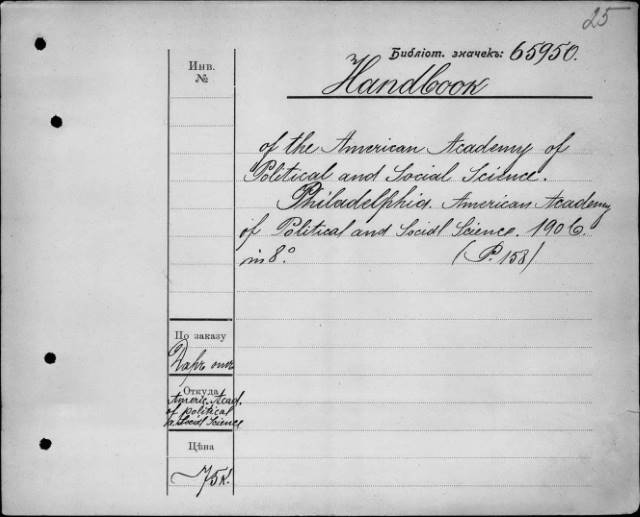 25
Библіот. значекъ: 65950.
Инв.
№
Handbook
of the American Academy of
Political and Social Science.
Philadelphia. American Academy
of Political and Social Science. 1906.
in 8.° (P. 158)
По заказу
Даръ отъ
Откуда
Americ. Acad.
of political
a. Social Science
Цѣна
75к.